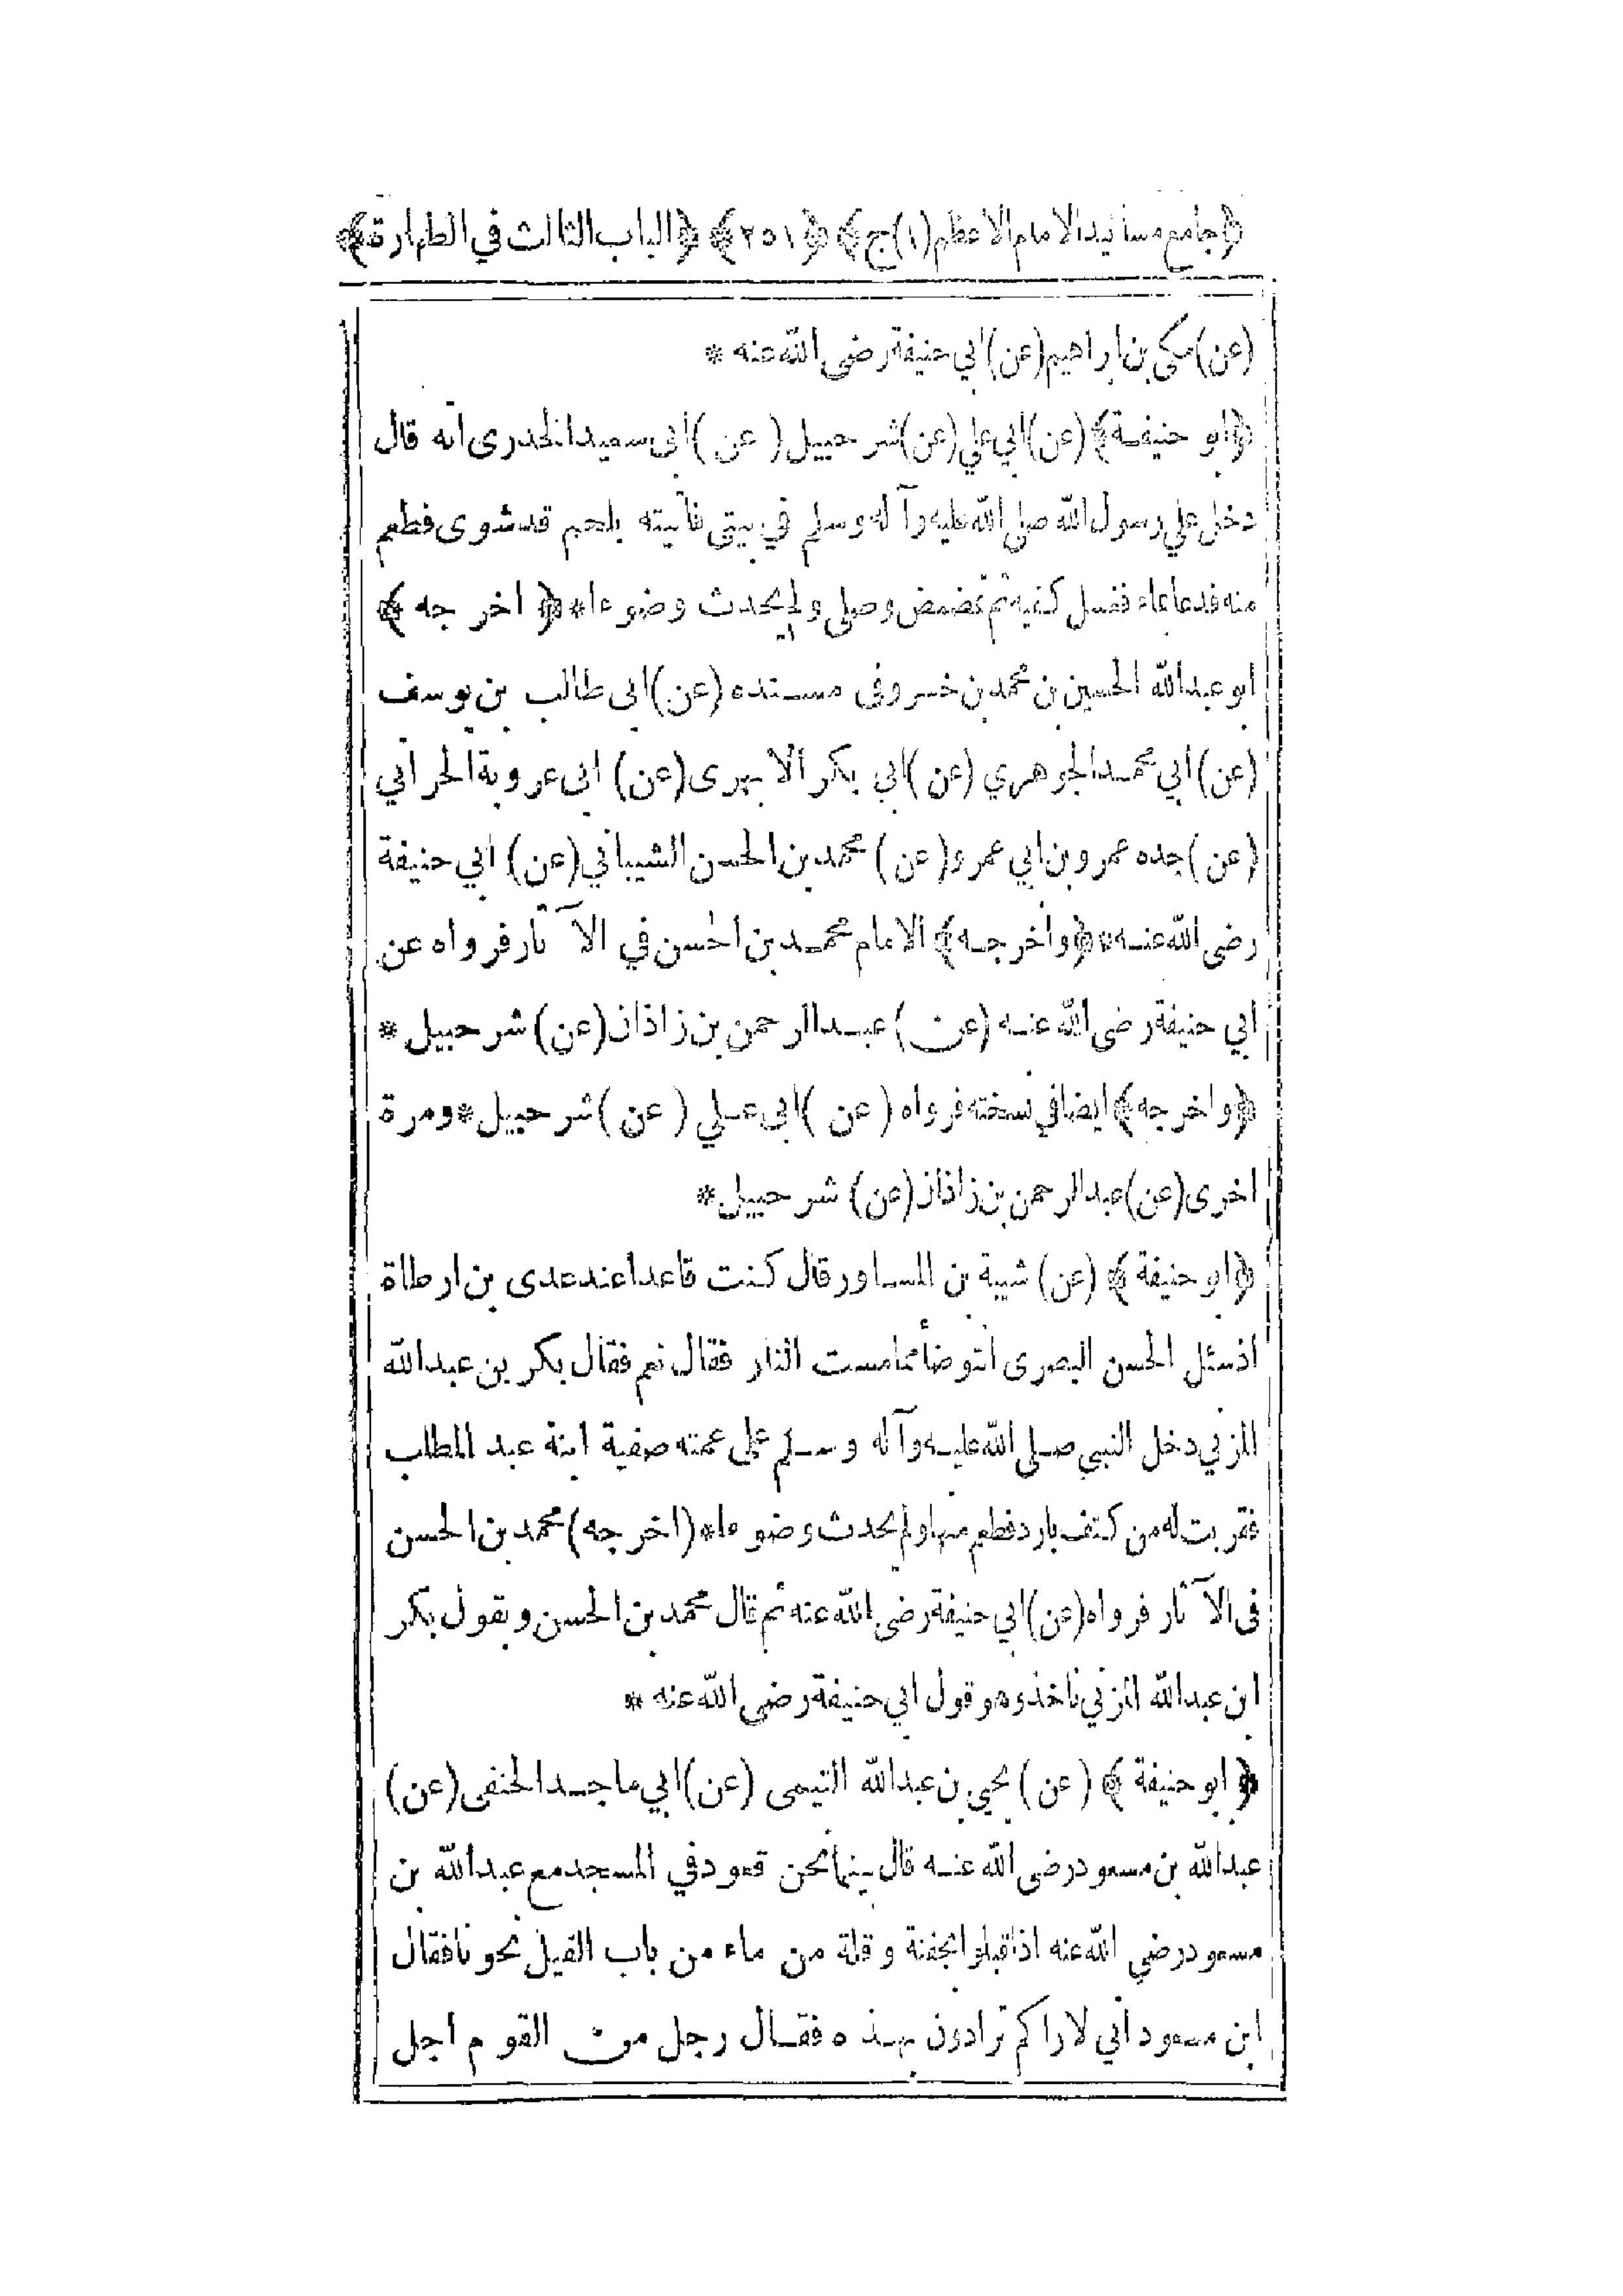 ﴿جامع مسانيد الامام الاعظم (١) ج﴾ ﴿٢٥١﴾ ﴿الباب الثالث في الطهارة﴾
(عن) مكى بن ابراهيم (عن) ابي حنيفة رضى الله عنه *
﴿ابو حنيفة﴾ (عن) ابي علي (عن) شرحبيل (عن) ابى سعيد الخدرى انه قال
دخل علي رسول الله صلى الله عليه وآله وسلم في بيتى فأتيته بلحم قد شوى فطعم
منه فدعا بماء فغسل كفيه ثم تمضمض وصلى ولم يحدث وضوءا* ﴿اخرجه﴾
ابو عبدالله الحسين بن محمد بن خسرو فى مسنده (عن) ابى طالب بن يوسف
(عن) ابي محمد الجوهري (عن) ابي بكر الابهرى (عن) ابى عروبة الحراني
(عن) جده عمرو بن ابي عمرو (عن) محمد بن الحسن الشيباني (عن) ابي حنيفة
رضى الله عنه* ﴿واخرجه﴾ الامام محمد بن الحسن في الآثار فرواه عن
ابي حنيفة رضى الله عنه (عن) عبدالرحمن بن زاذان (عن) شرحبيل *
﴿واخرجه﴾ ايضا في نسخته فرواه (عن) ابى علي (عن) شرحبيل* ومرة
اخرى (عن) عبدالرحمن بن زاذان (عن) شرحبيل*
﴿ابو حنيفة﴾ (عن) شيبة بن المساور قال كنت قاعدا عند عدى بن ارطاة
اذ سئل الحسن البصرى أنتوضأ مما مست النار فقال نعم فقال بكر بن عبدالله
المزني دخل النبي صلى الله عليه وآله وسلم على عمته صفية ابنة عبد المطلب
فقربت له من كتف بارد فطعم منها ولم يحدث وضوءا* (اخرجه) محمد بن الحسن
فى الآثار فرواه (عن) ابي حنيفة رضى الله عنه ثم قال محمد بن الحسن وبقول بكر
ابن عبدالله المزني ناخذ وهو قول ابي حنيفة رضى الله عنه *
﴿ابو حنيفة﴾ (عن) يحيى بن عبدالله التيمى (عن) ابي ماجد الحنفى (عن)
عبدالله بن مسعود رضى الله عنه قال بينما نحن قعود في المسجد مع عبدالله بن
مسعود رضي الله عنه اذ اقبلوا بجفنة وقلة من ماء من باب الفيل نحونا فقال
ابن مسعود اني لاراكم ترادون بهذه فقال رجل من القوم اجل